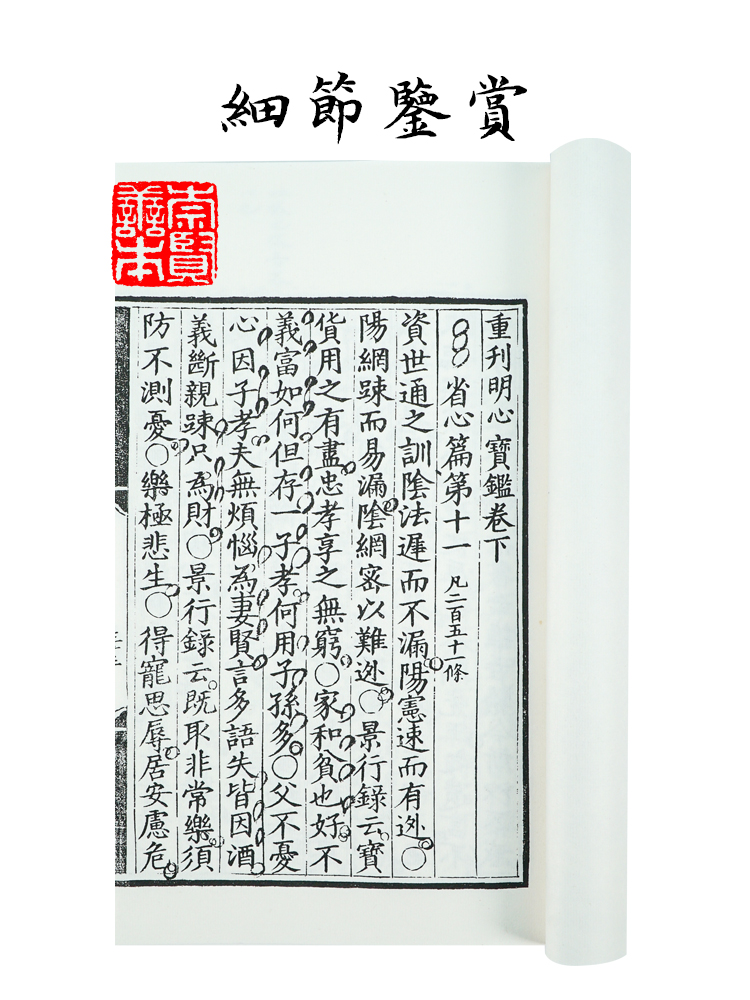 細節鑒賞
崇賢
善本
重刊明心寶鑑卷下
省心篇第十一 凡二百五十一條
資世通之訓陰法遲而不漏陽憲速而有逃○
陽網踈而易漏陰網密以難逃○景行錄云寶
貨用之有盡忠孝享之無窮○家和貧也好不
義富如何但存一子孝何用子孫多○父不憂
心因子孝夫無煩惱為妻賢言多語失皆因酒
義斷親踈只為財○景行錄云既取非常樂須
防不測憂○樂極悲生○得寵思辱居安慮危